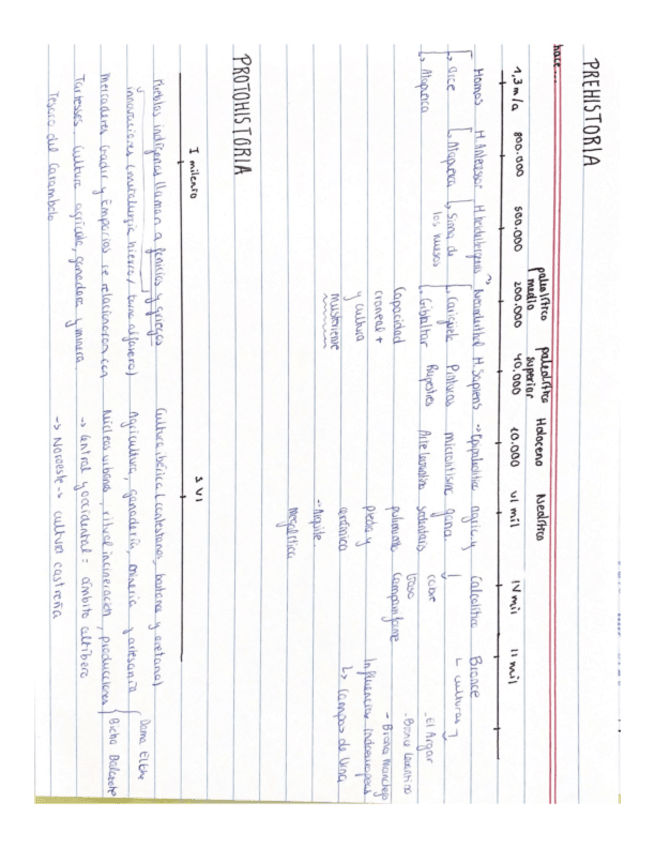 PREHISTORIA
hace...
paleolítico medio
paleolítico superior
Holoceno
Neolítico
1,3 m/a 800.000 500.000 200.000 40.000 10.000 VI mil IV mil II mil
Homos H. Antecessor H. heidelbergensis Neanderthal H. Sapiens -> Epipaleolítico agric. y Calcolítico Bronce
Orce Atapuerca Sima de los huesos Carigüela Pinturas microlitismo gana. cobre culturas
Atapuerca Gibraltar Rupestres Arte levantino sedentaris Vaso Campaniforme - El Argar
- Bronce Levantino
Capacidad pulimento - Bronce Manchego
craneal + piedra y Influencias Indoeuropeas
y cultura cerámica -> Campos de Urna
musteriense - Arquite.
Megalítica
PROTOHISTORIA
I milenio S VI
Pueblos indígenas llaman a fenicios y griegos
innovaciones (metalurgia hierro / torno alfarero)
mercaderes Gadir y Emporios se relacionaron con
Tartessos cultura agrícola, ganadera y minera.
Tesoro del Carambolo
Cultura ibérica (contestanos, bastetanos y oretanos)
Agricultura, ganadería, minería y artesanía
Núcleos urbanos, ritual incineración, producciones
Dama Elche
Bicha Balazote
-> Central y occidental = ámbito celtíbero
-> Noroeste -> cultura castreña